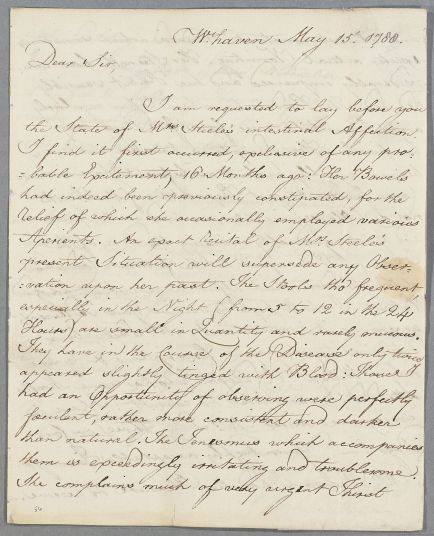 Wthaven May 15. 1788.
Dear Sir,
I am requested to lay before you
the State of Mrs Steele's intestinal Affection.
I find it first occurred, exclusive of any pro:
:bable Excitement, 16 Months ago: Her Bowels
had indeed been previously constipated, for the
relief of which she occasionally employed various
Aperients. An exact Recital of Mrs Steele's
present Situation will supersede any Obser:
:vation upon her past. The Stools tho' frequent,
especially in the Night (from 5 to 12 in the 24
Hours) are small in Quantity and rarely mucous.
They have in the Course of the Disease only twice
appeared slightly tinged with Blood: Those I
had an Opportunity of observing were perfectly
fœculent, rather more consistent and darker
than natural. The Tenesmus which accompanies
them is exceedingly irritating and troublesome.
She complains much of very urgent Thirst